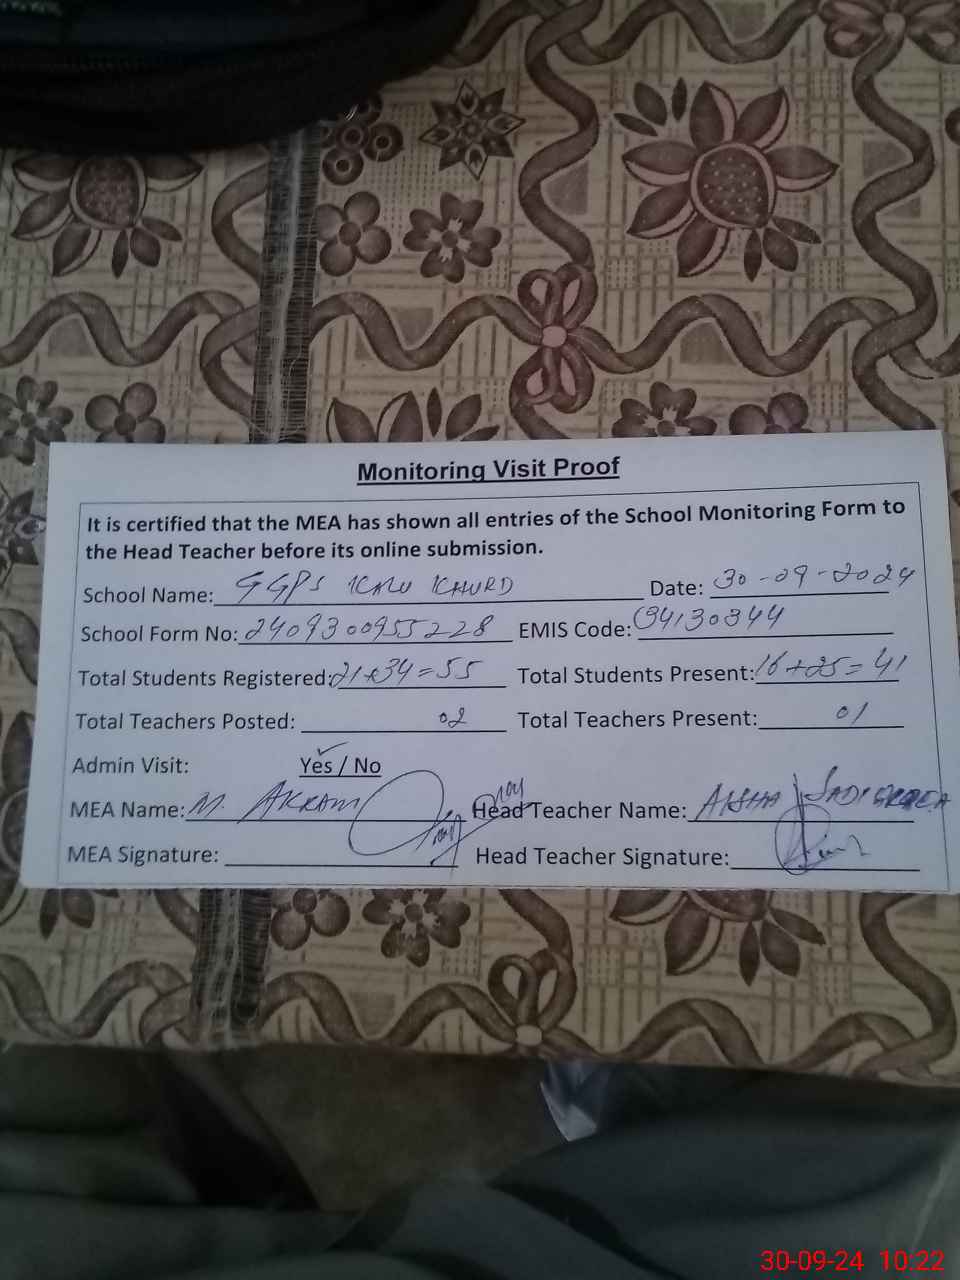 Monitoring Visit Proof
It is certified that the MEA has shown all entries of the School Monitoring Form to
the Head Teacher before its online submission.
School Name: GGPS KALU KHURD Date: 30-09-2024
School Form No: 2409300955228 EMIS Code: 34130344
Total Students Registered: 21+34=55 Total Students Present: 16+25=41
Total Teachers Posted: 02 Total Teachers Present: 01
Admin Visit: Yes / No
MEA Name: M. AKRAM Head Teacher Name: AISHA
MEA Signature: Head Teacher Signature:
30-09-24 10:22